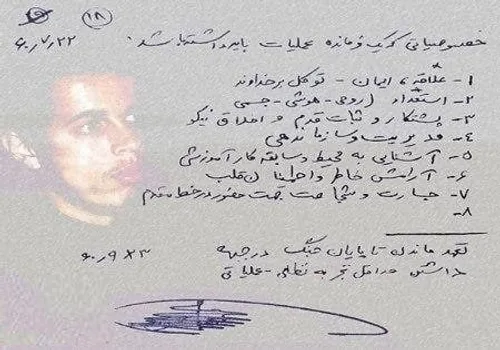 ۱۸
۶۰٫۷٫۲۲
خصوصیاتی که یک فرمانده عملیات باید داشته باشد:
۱- علاقه، ایمان - توکل بر خداوند
۲- استعداد (روحی - هوشی - جسمی
۳- پشتکار و ثبات قدم و اخلاق نیکو
۴- مدیریت و سازماندهی
۵- آشنایی به محیط و سابقه کار آموزشی
۶- آرامش خاطر و اطمینان قلب
۷- جسارت و شجاعت جهت حضور در خط مقدم
۸-
تعهد ماندن تا پایان جنگ در جبهه
داشتن حداقل تجربه نظامی - عملیاتی